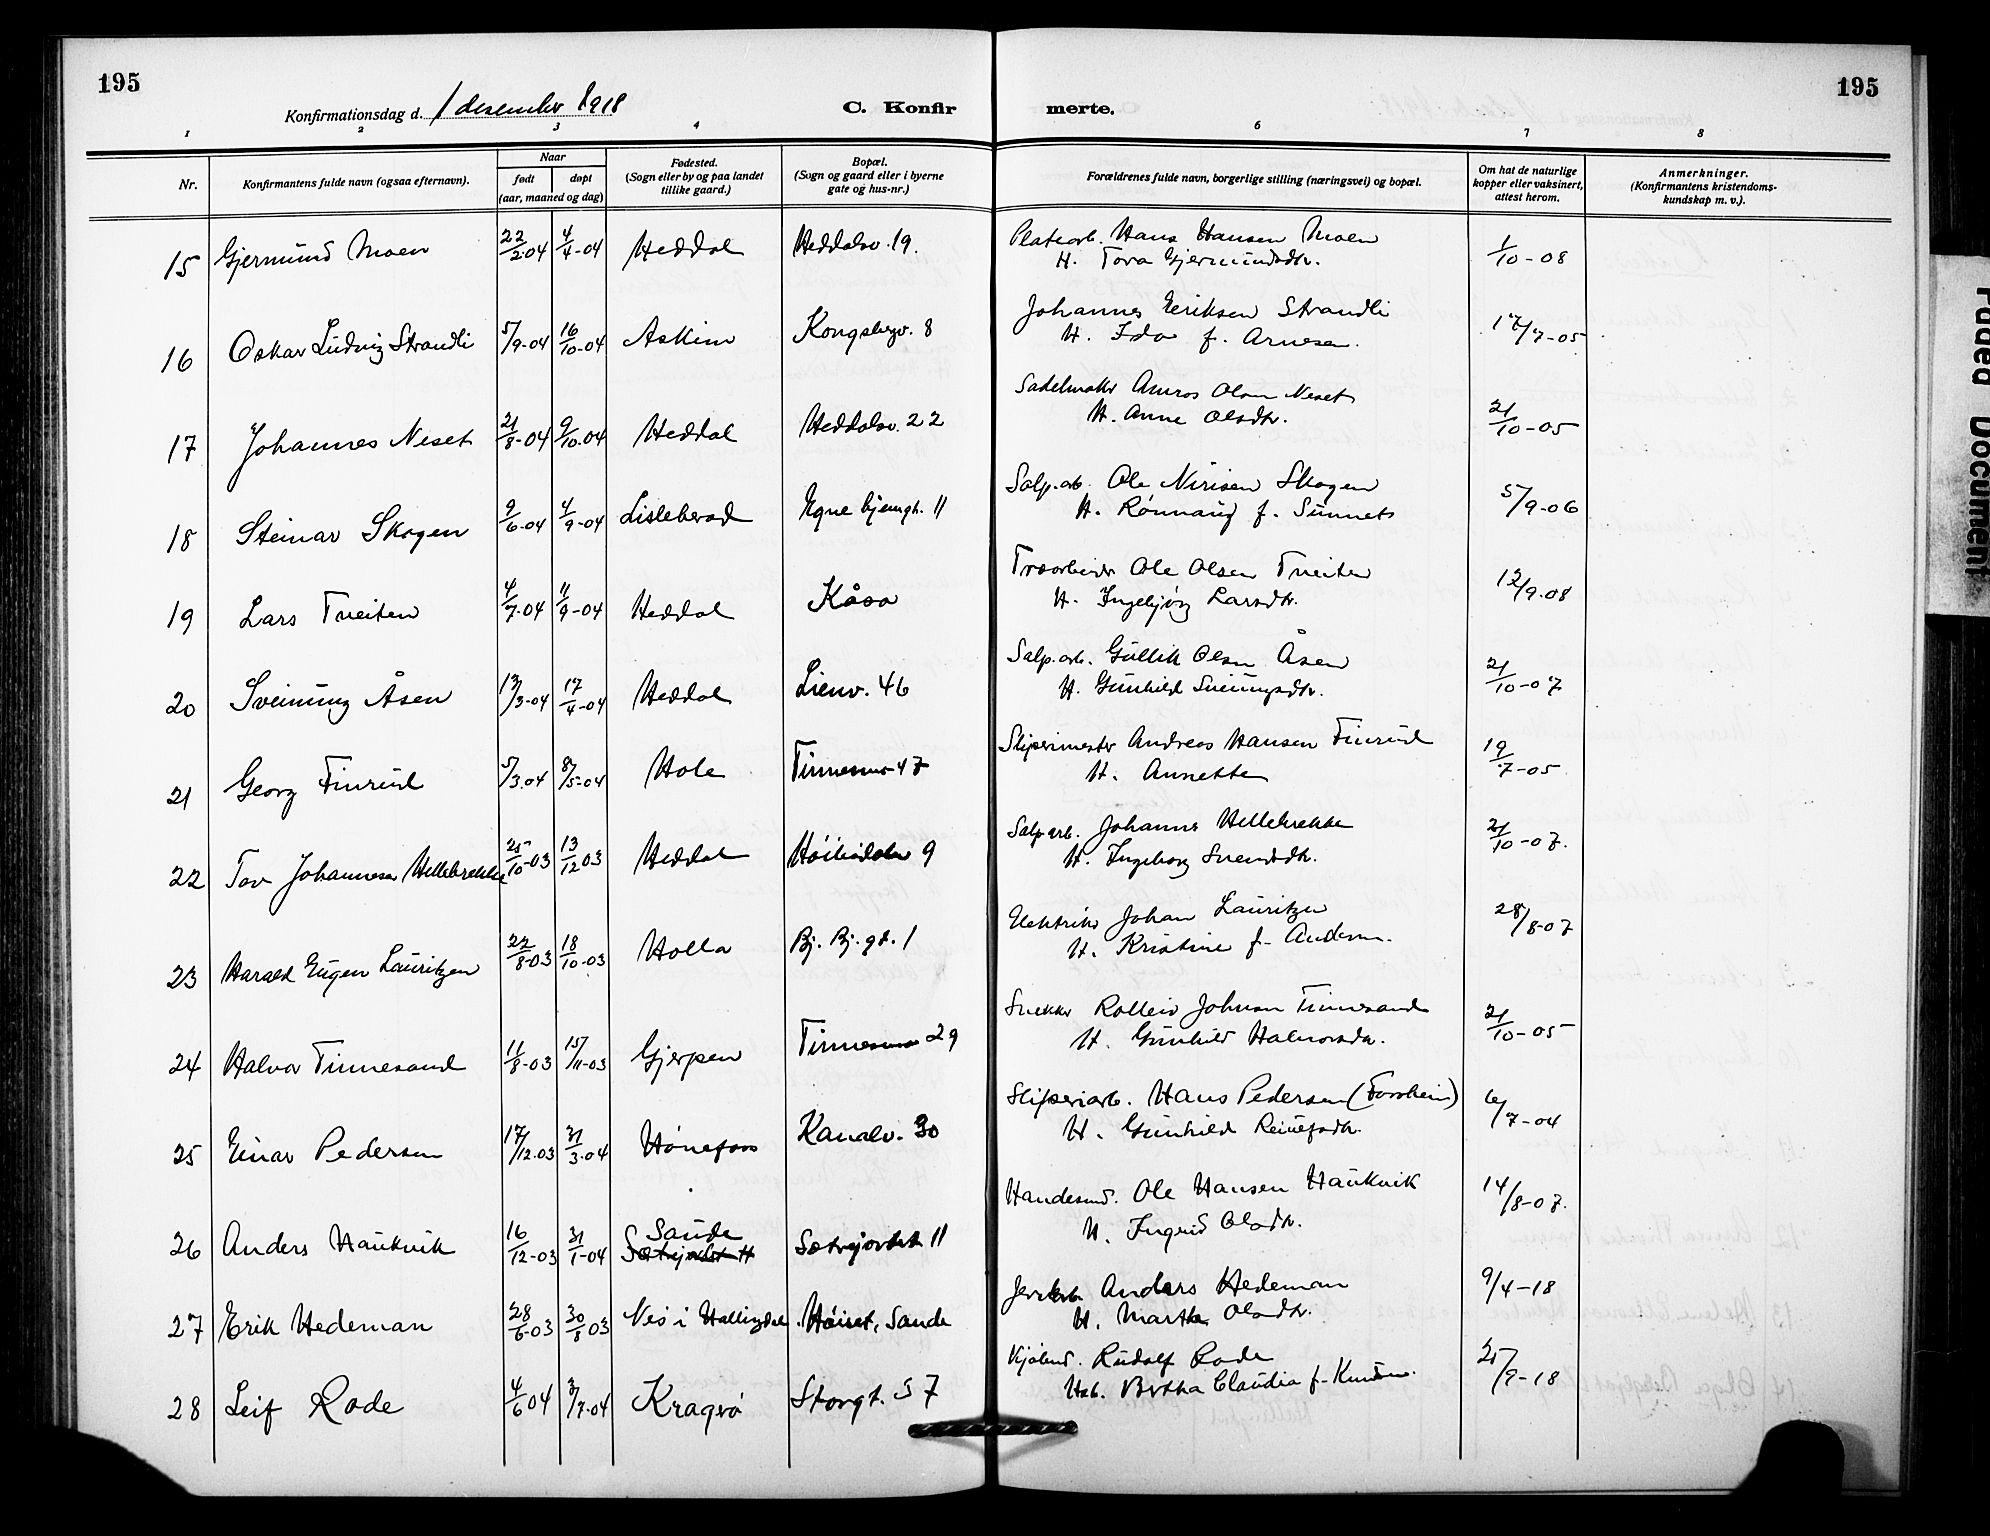 195
195
Konfirmationsdag d. 1 desember 1918
C. Konfir
merte.
1 2 3 4 5 6 7 8
Nr.
Konfirmantens fulde navn (ogsaa efternavn).
Naar
født
døpt
(aar, maaned og dag)
Fødested.
(Sogn eller by og paa landet
tillike gaard.)
Bopæl.
(Sogn og gaard eller i byerne
gate og hus-nr.)
Forældrenes fulde navn, borgerlige stilling (næringsvei) og bopæl.
Om hat de naturlige
kopper eller vaksinert,
attest herom.
Anmerkninger.
(Konfirmantens kristendoms-
kundskap m. v.).
15 Gjermund Moen 22/2-04 4/4-04 Heddal Heddalsv. 19. Hans Hansen Moen 1/10-08
H. Tora Gjermundsdtr.
16 Oskar Ludvig Strandli 5/9-04 16/10-04 Askim Kongsbergv. 8 Johannes Eriksen Strandli 17/7-05
H. Ida f. Arnesen.
17 Johannes Neset 21/8-04 9/10-04 Heddal Heddalsv. 22 Sadelmaker Amros Olsen Neset 21/10-05
H. Anne Olsdtr.
18 Steinar Skogen 9/6-04 4/9-04 Lisleherad Egne hjemgt. 11 Salp.arb. Ole Nirisen Skogen 5/9-06
H. Rønnaug f. Sunnets
19 Lars Tveiten 4/7-04 11/9-04 Heddal Kåsa Træarbeider Ole Olsen Tveiten 12/9-08
H. Ingebjørg Larsdtr.
20 Sveinung Åsen 13/3-04 17/4-04 Heddal Lienv. 46 Salp.arb. Gullik Olsen Åsen 21/10-07
H. Gunhild Sveinungsdtr.
21 Georg Finrud 5/3-04 8/5-04 Hole Tinnesmo 47 Sliperimester Andreas Hansen Finrud 19/7-05
H. Annette
22 Tov Johannesen Hellebrekke 25/10-03 13/12 03 Heddal 9 Salp.arb. Johannes Hellebrekke 21/10-07.
H. Ingeborg Svendsdtr.
23 Harald Eugen Lauritzen 22/8-03 18/10-03 Holla Bj. Bj. gt. 1 Elektriker Johan Lauritzen 28/8-07
H. Kristine f. Andersen.
24 Halvor Tinnesand 11/8-03 15/11-03 Gjerpen Tinnesmo 29 Snekker Rolleiv Johnsen Tinnesand 21/10-05
H. Gunhild Halvorsdtr.
25 Einar Pedersen 17/12.03 31/3-04 Hønefoss Kanalv. 30 Sliperiarb. Hans Pedersen (Forsheim) 6/7-04
H. Gunhild
26 Anders Haukvik 16/12-03 31/1-04 Saude Sætrejordet 11 Sætrejordet 11 Handelsmd. Ole Hansen Haukvik 14/8-07.
H. Ingrid Olsdtr.
27 Erik Hedeman 28/6-03 30/8 03 Nes i Hallingdal. Høiset, Sande Jernarb. Anders Hedeman 9/4-18
H. Marthe Olsdtr.
28 Leif Rode 4/6 04 3/7-04 Kragerø Storgt. 57 Kjøbmd. Rudolf Rode 25/9-18
Hst. Bertha Claudia f. Knudsen.
Faded Document